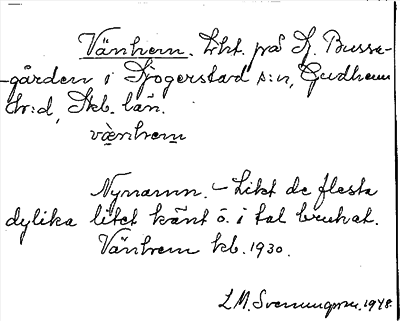 Vänhem. Lht. på Kf. Bussa-
-gården i Sjogerstad s:n, Gudhems
hr:d, Skb. län.
vænhem
Nynamn. - Likt de flesta
dylika litet känt o. i tal brukat.
Vänhem kb. 1930.
L M. Svenungsson. 1948.